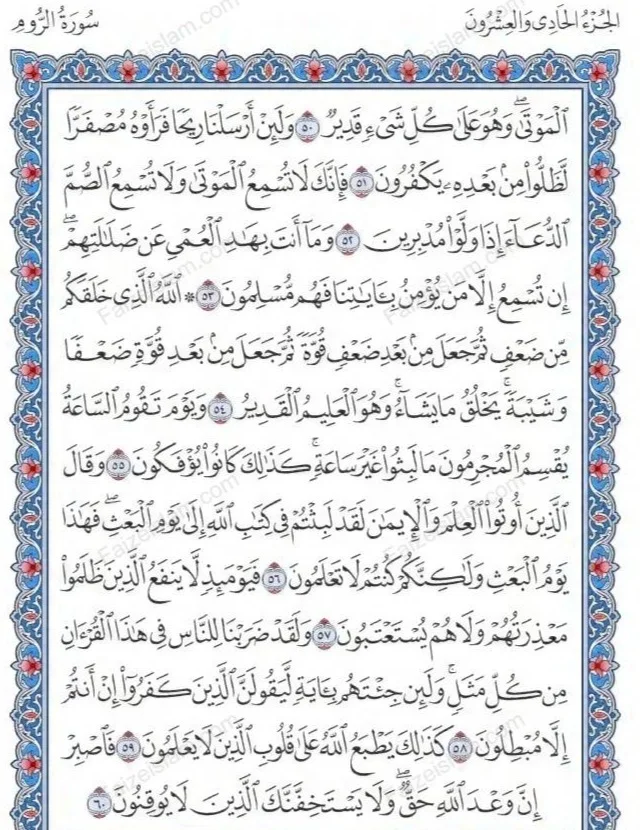 الجُزْءُ الحَادِى وَالعِشْرُونَ سُورَةُ الرُّومِ
ٱلْمَوْتَىٰۖ وَهُوَ عَلَىٰ كُلِّ شَىْءٍ قَدِيرٌ ٥٠ وَلَئِنْ أَرْسَلْنَا رِيحًا فَرَأَوْهُ مُصْفَرًّا
لَّظَلُّوا۟ مِنۢ بَعْدِهِۦ يَكْفُرُونَ ٥١ فَإِنَّكَ لَا تُسْمِعُ ٱلْمَوْتَىٰ وَلَا تُسْمِعُ ٱلصُّمَّ
ٱلدُّعَآءَ إِذَا وَلَّوْا۟ مُدْبِرِينَ ٥٢ وَمَآ أَنتَ بِهَٰدِ ٱلْعُمْىِ عَن ضَلَٰلَتِهِمْۖ
إِن تُسْمِعُ إِلَّا مَن يُؤْمِنُ بِـَٔايَٰتِنَا فَهُم مُّسْلِمُونَ ٥٣ * ٱللَّهُ ٱلَّذِى خَلَقَكُم
مِّن ضَعْفٍ ثُمَّ جَعَلَ مِنۢ بَعْدِ ضَعْفٍ قُوَّةً ثُمَّ جَعَلَ مِنۢ بَعْدِ قُوَّةٍ ضَعْفًا
وَشَيْبَةًۚ يَخْلُقُ مَا يَشَآءُۚ وَهُوَ ٱلْعَلِيمُ ٱلْقَدِيرُ ٥٤ وَيَوْمَ تَقُومُ ٱلسَّاعَةُ
يُقْسِمُ ٱلْمُجْرِمُونَ مَا لَبِثُوا۟ غَيْرَ سَاعَةٍۚ كَذَٰلِكَ كَانُوا۟ يُؤْفَكُونَ ٥٥ وَقَالَ
ٱلَّذِينَ أُوتُوا۟ ٱلْعِلْمَ وَٱلْإِيمَٰنَ لَقَدْ لَبِثْتُمْ فِى كِتَٰبِ ٱللَّهِ إِلَىٰ يَوْمِ ٱلْبَعْثِۖ فَهَٰذَا
يَوْمُ ٱلْبَعْثِ وَلَٰكِنَّكُمْ كُنتُمْ لَا تَعْلَمُونَ ٥٦ فَيَوْمَئِذٍ لَّا يَنفَعُ ٱلَّذِينَ ظَلَمُوا۟
مَعْذِرَتُهُمْ وَلَا هُمْ يُسْتَعْتَبُونَ ٥٧ وَلَقَدْ ضَرَبْنَا لِلنَّاسِ فِى هَٰذَا ٱلْقُرْءَانِ
مِن كُلِّ مَثَلٍۚ وَلَئِن جِئْتَهُم بِـَٔايَةٍ لَّيَقُولَنَّ ٱلَّذِينَ كَفَرُوٓا۟ إِنْ أَنتُمْ
إِلَّا مُبْطِلُونَ ٥٨ كَذَٰلِكَ يَطْبَعُ ٱللَّهُ عَلَىٰ قُلُوبِ ٱلَّذِينَ لَا يَعْلَمُونَ ٥٩ فَٱصْبِرْ
إِنَّ وَعْدَ ٱللَّهِ حَقٌّۖ وَلَا يَسْتَخِفَّنَّكَ ٱلَّذِينَ لَا يُوقِنُونَ ٦٠
Faizeislam.com